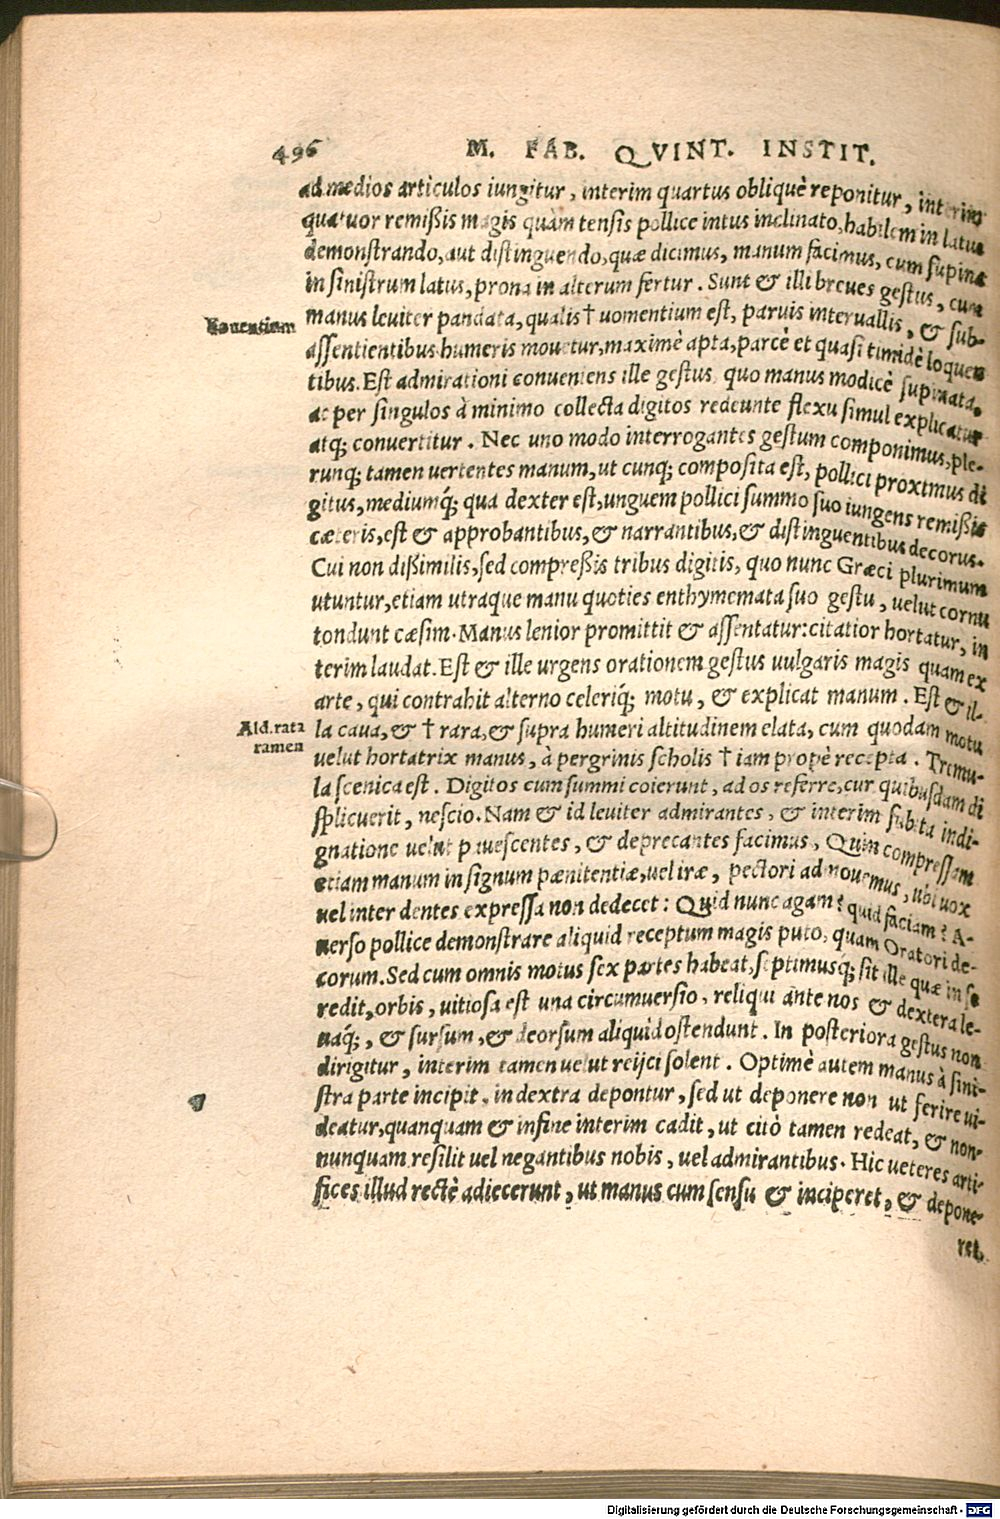 496 M. FAB. QVINT. INSTIT.
ad medios articulos iungitur, interim quartus obliquè reponitur, interim
quatuor remißis magis quàm tensis pollice intus inclinato, habilem in latus
demonſtrando, aut diſtinguendo, quæ dicimus, manum facimus, cum ſupina
in ſiniſtrum latus, prona in alterum fertur. Sunt & illi breues geſtus, cum
manus leuiter pandata, qualis † uomentium eſt, paruis interuallis, & ſub-
aſſentientibus humeris mouetur, maximè apta, parcè et quaſi timidè loquen
tibus. Eſt admirationi conueniens ille geſtus, quo manus modicè ſupinata,
ac per ſingulos à minimo collecta digitos redeunte flexu ſimul explicatur
atq; conuertitur. Nec uno modo interrogantes geſtum componimus, ple-
runq; tamen uertentes manum, ut cunq; compoſita eſt, pollici proximus di
gitus, mediumq́; qua dexter eſt, unguem pollici ſummo ſuo iungens remißis
cæteris, eſt & approbantibus, & narrantibus, & diſtinguentibus decorus.
Cui non dißimilis, ſed compreßis tribus digitis, quo nunc Græci plurimum
utuntur, etiam utraque manu quoties enthymemata ſuo geſtu, uelut cornu
tondunt cæſim. Manus lenior promittit & aſſentatur: citatior hortatur, in
terim laudat. Eſt & ille urgens orationem geſtus uulgaris magis quam ex
arte, qui contrahit alterno celeriq́; motu, & explicat manum. Eſt & il-
Ald. rata
ramen
la caua, & † rara, & ſupra humeri altitudinem elata, cum quodam motu
uelut hortatrix manus, à pergrinis ſcholis † iam propè recepta. Tremu-
la ſcenica eſt. Digitos cum ſummi coierunt, ad os referre, cur quibuſdam di
ſplicuerit, neſcio. Nam & id leuiter admirantes, & interim ſubita indi-
gnatione uelut paueſcentes, & deprecantes facimus, Quin compreſſam
etiam manum in ſignum pænitentiæ, uel iræ, pectori admouemus, ubi uox
uel inter dentes expreſſa non dedecet: Quid nunc agam? quid faciam? A-
uerſo pollice demonſtrare aliquid receptum magis puto, quam Oratori de-
corum. Sed cum omnis motus ſex partes habeat, ſeptimusq́; ſit ille quæ in ſe
redit, orbis, uitioſa eſt una circumuerſio, reliqui ante nos & dextera le-
uaq́;, & ſurſum, & deorſum aliquid oſtendunt. In poſteriora geſtus non
dirigitur, interim tamen uelut reijci ſolent. Optimè autem manus à ſini-
ſtra parte incipit, in dextra depontur, ſed ut deponere non ut ferire ui-
deatur, quanquam & in fine interim cadit, ut citò tamen redeat, & non-
nunquam reſilit uel negantibus nobis, uel admirantibus. Hic ueteres arti-
fices illud rectè adiecerunt, ut manus cum ſenſu & inciperet, & depone-
ret.
Digitalisierung gefördert durch die Deutsche Forschungsgemeinschaft - DFG